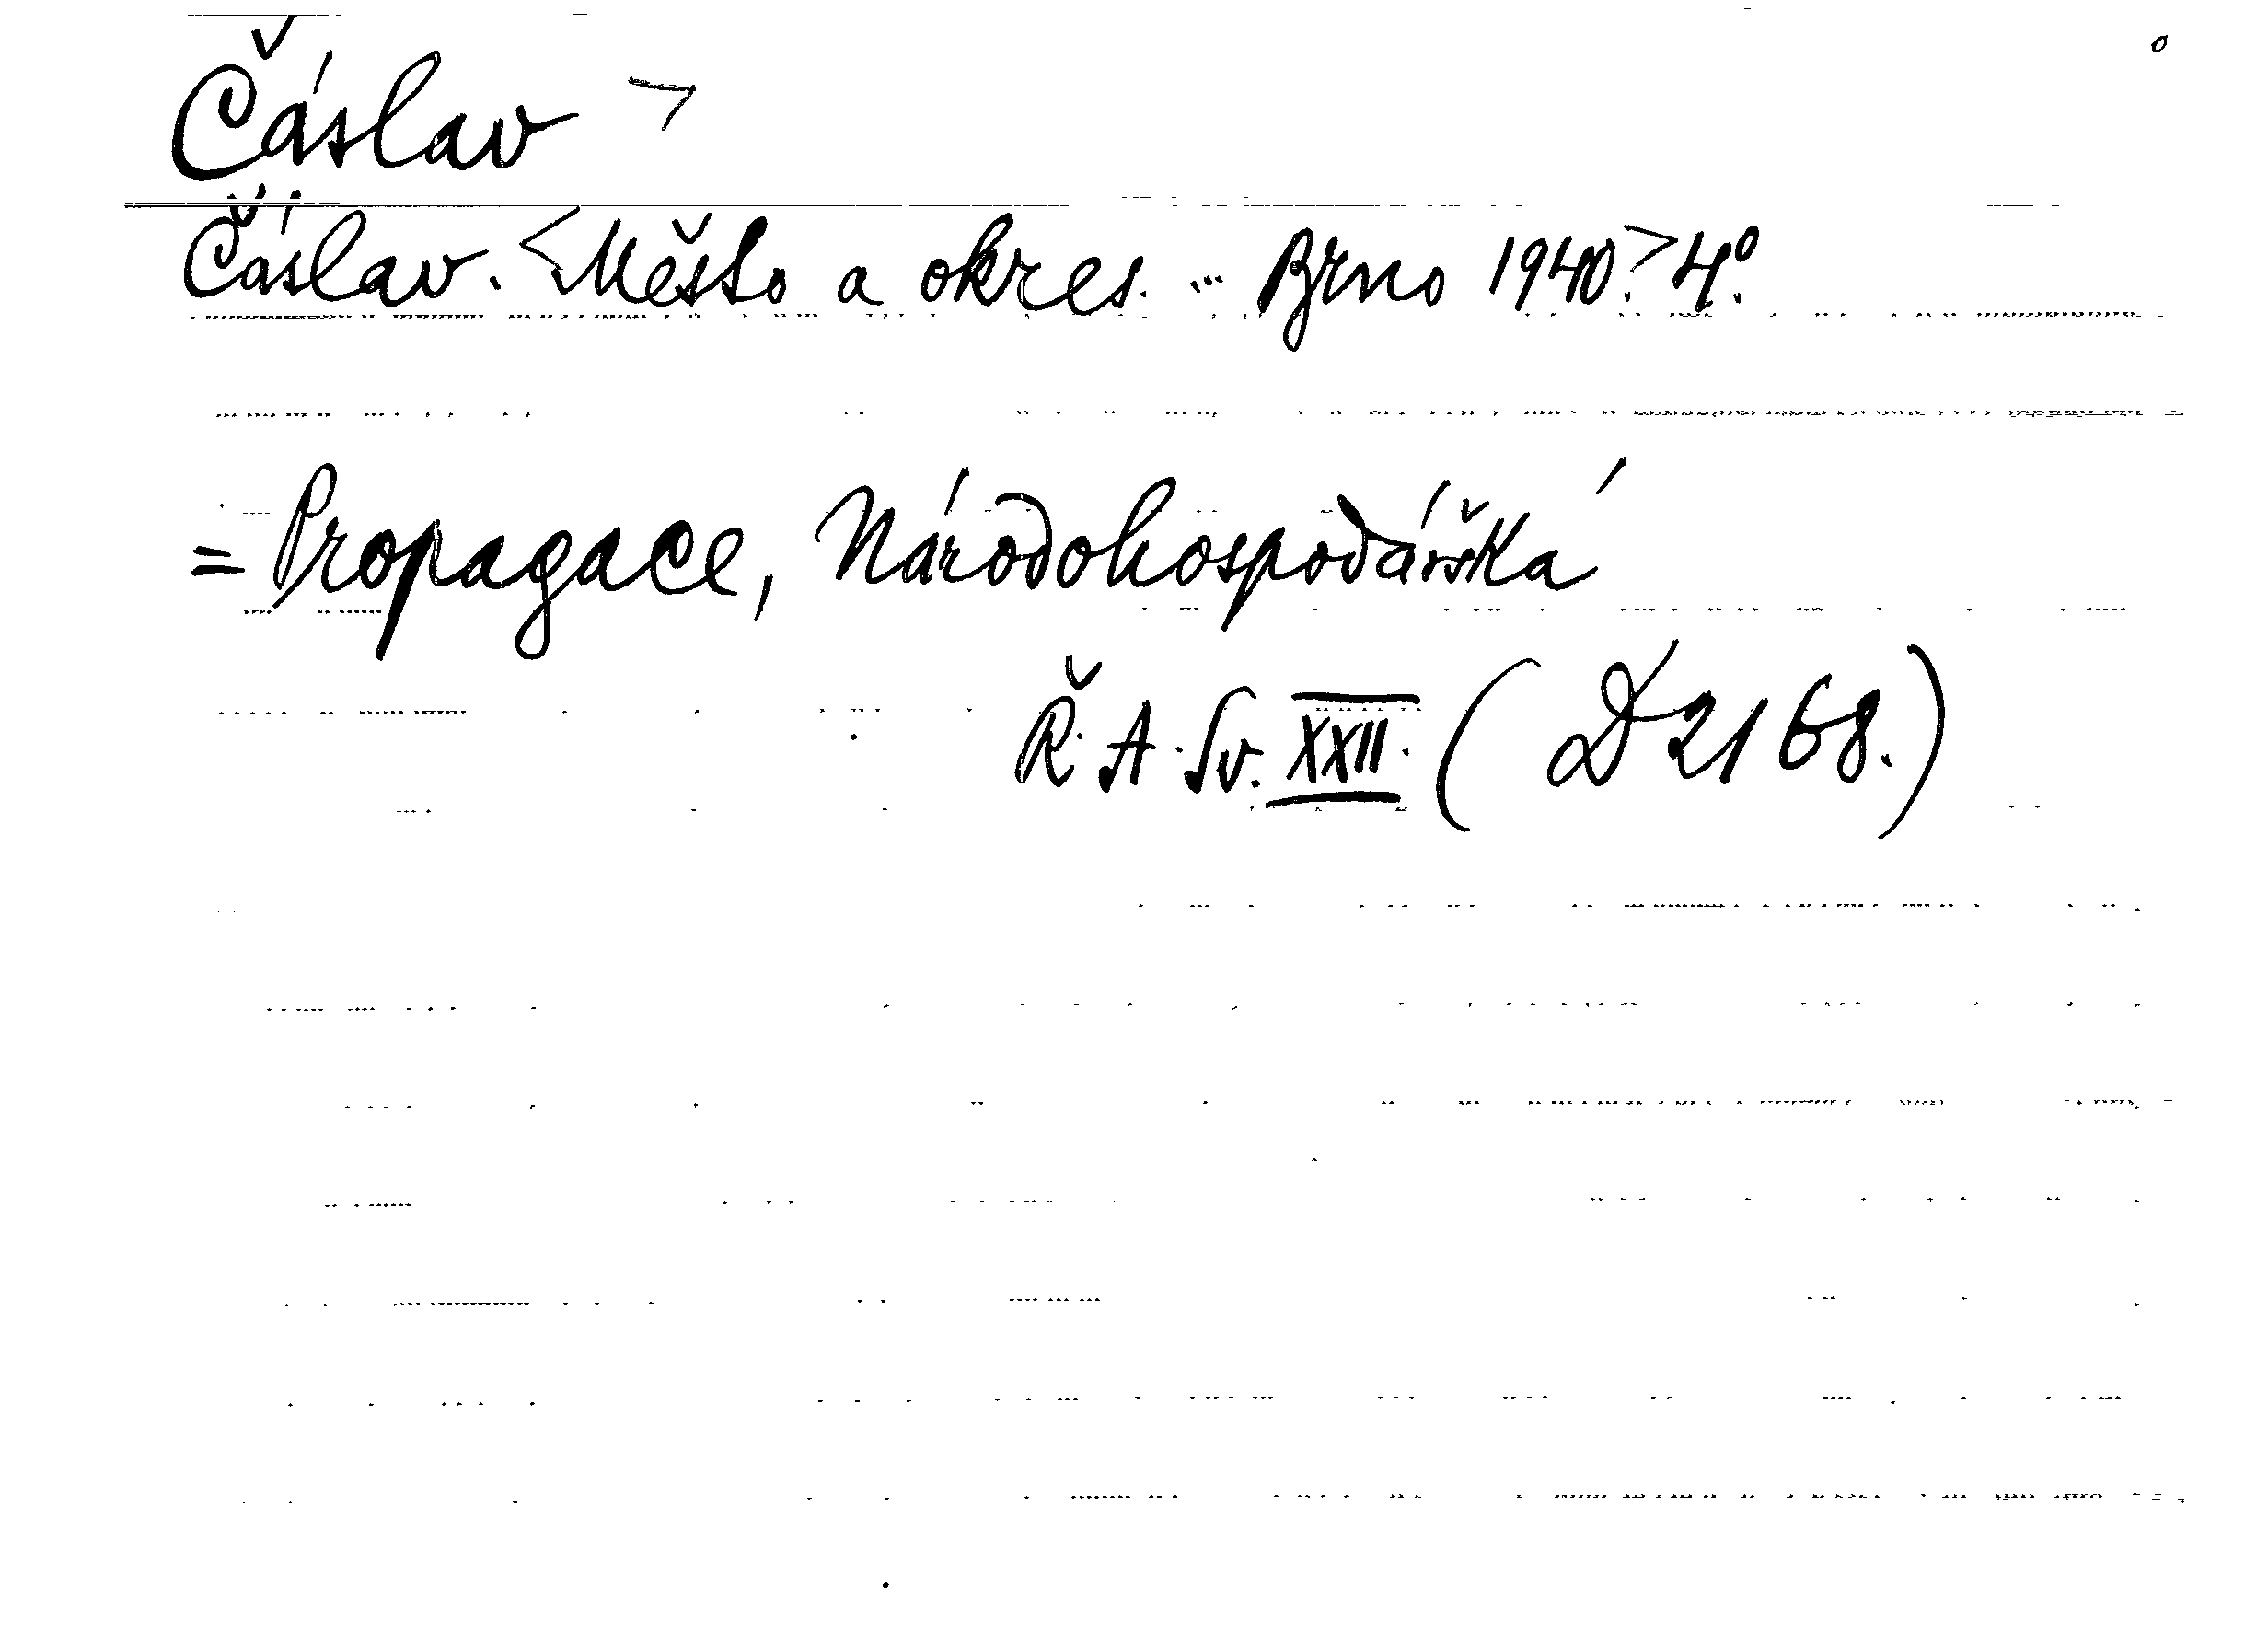 Čáslav >
Čáslav. <Město a okres. ... Brno 1940.> 4°.
= Propagace, Národohospodářská
Ř. A. Sv. XXII. (D 2168.)